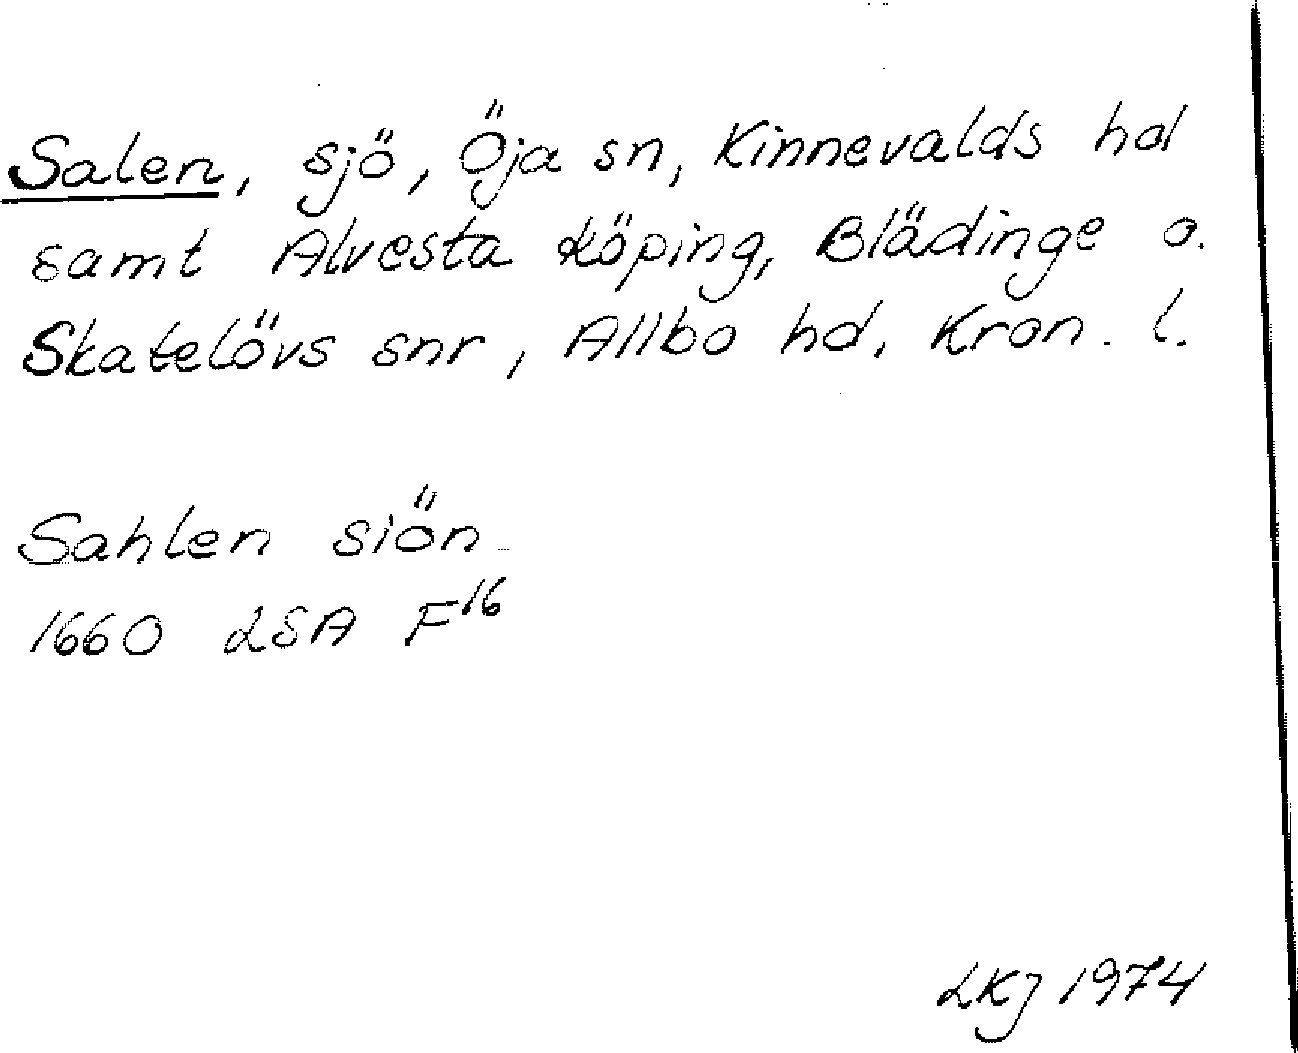 Salen, sjö, Öja sn, Kinnevalds hd
samt Alvesta köping, Blädinge o.
Skatelövs snr, Allbo hd, Kron. l.
Sahlen siön
1660 LSA F16
LKJ 1974